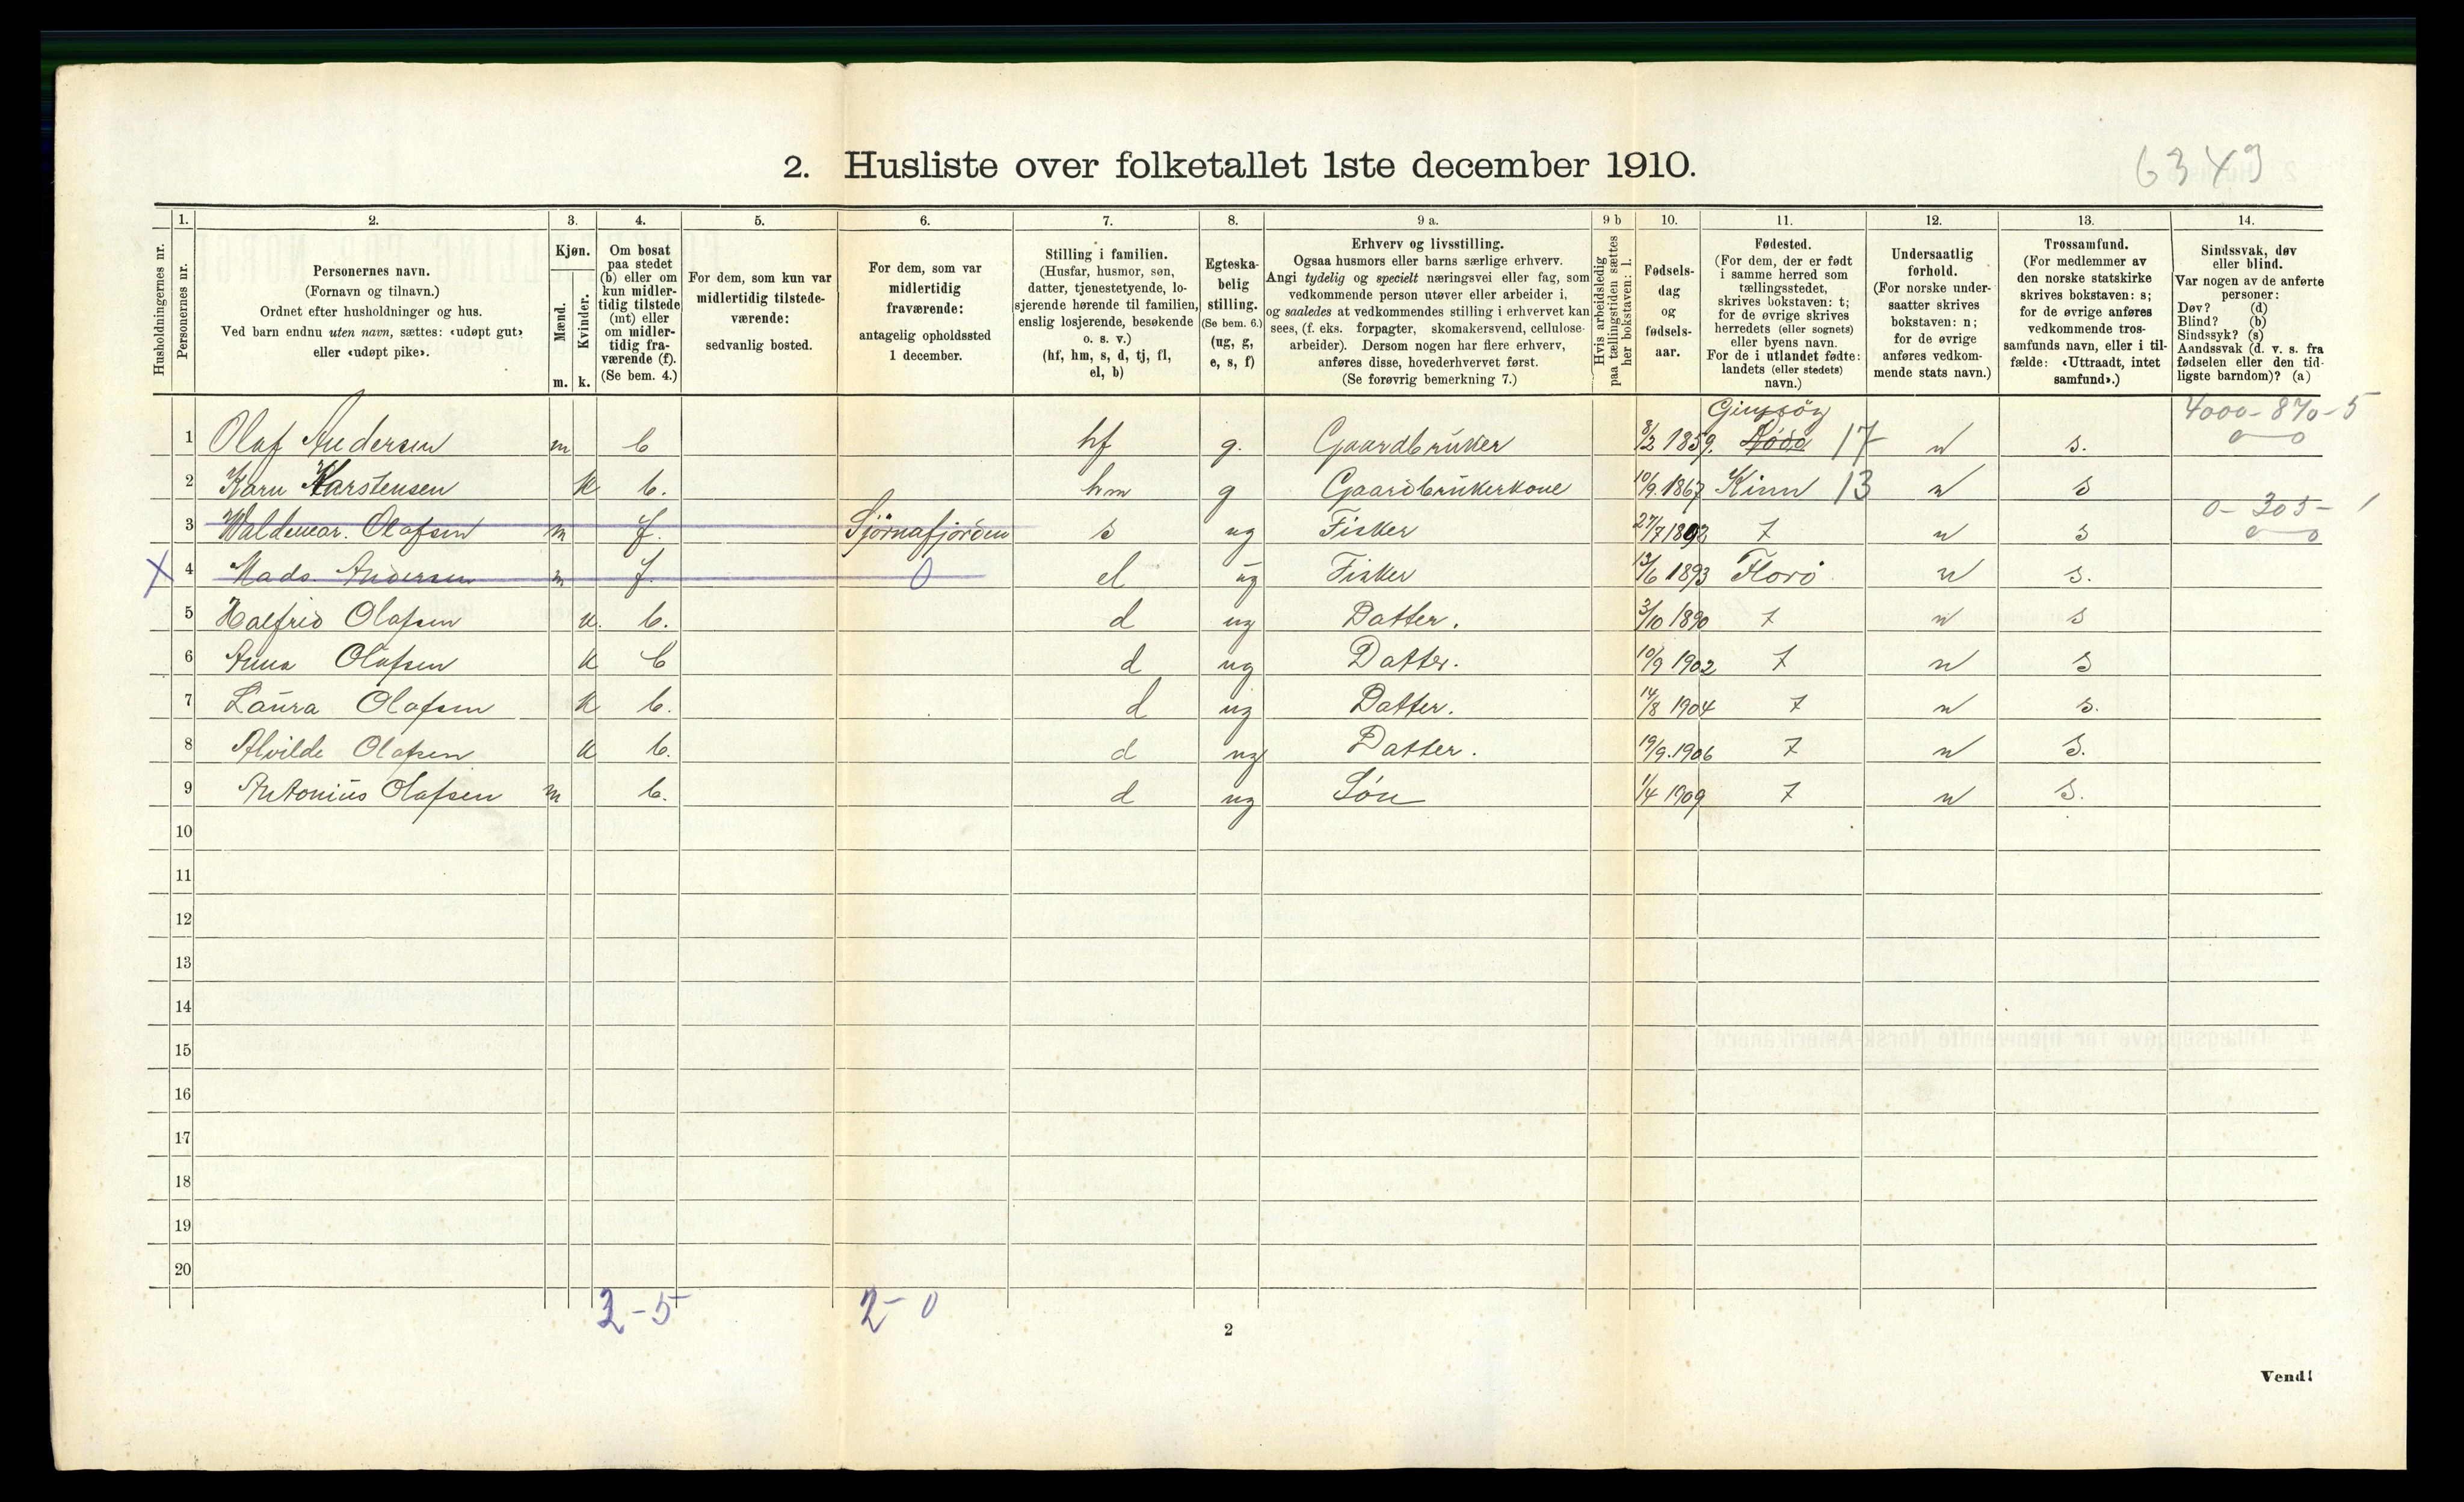 2. Husliste over folketallet 1ste december 1910.
6343
Husholdningernes nr.
1. Personernes nr.
2. Personernes navn. (Fornavn og tilnavn.) Ordnet efter husholdninger og hus. Ved barn endnu uten navn, sættes: «udøpt gut» eller «udøpt pike».
3. Kjøn. Mænd. m. Kvinder. k.
4. Om bosat paa stedet (b) eller om kun midlertidig tilstede (mt) eller om midlertidig fraværende (f). (Se bem. 4.)
5. For dem, som kun var midlertidig tilstedeværende: sedvanlig bosted.
6. For dem, som var midlertidig fraværende: antagelig opholdssted 1 december.
7. Stilling i familien. (Husfar, husmor, søn, datter, tjenestetyende, losjerende hørende til familien, enslig losjerende, besøkende o. s. v.) (hf, hm, s, d, tj, fl, el, b)
8. Egteskabelig stilling. (Se bem. 6.) (ug, g, e, s, f)
9 a. Erhverv og livsstilling. Ogsaa husmors eller barns særlige erhverv. Angi tydelig og specielt næringsvei eller fag, som vedkommende person utøver eller arbeider i, og saaledes at vedkommendes stilling i erhvervet kan sees, (f. eks. forpagter, skomakersvend, cellulosearbeider). Dersom nogen har flere erhverv, anføres disse, hovederhvervet først. (Se forøvrig bemerkning 7.)
9 b Hvis arbeidsledig paa tællingstiden sættes her bokstaven: l.
10. Fødselsdag og fødselsaar.
11. Fødested. (For dem, der er født i samme herred som tællingsstedet, skrives bokstaven: t; for de øvrige skrives herredets (eller sognets) eller byens navn. For de i utlandet fødte: landets (eller stedets) navn.)
12. Undersaatlig forhold. (For norske undersaatter skrives bokstaven: n; for de øvrige anføres vedkommende stats navn.)
13. Trossamfund. (For medlemmer av den norske statskirke skrives bokstaven: s; for de øvrige anføres vedkommende trossamfunds navn, eller i tilfælde: «Uttraadt, intet samfund».)
14. Sindssvak, døv eller blind. Var nogen av de anførte personer: Døv? (d) Blind? (b) Sindssyk? (s) Aandssvak (d. v. s. fra fødselen eller den tidligste barndom)? (a)
4000-870-5
1 Olaf Andersen m b hf g. Gaardbruker 8/2 1859. 17 n s. 0-0
2 Karn Karstensen k b. hm g Gaardbrukerkone 10/9 1867 Kinn 13 n s
0-305-1
3 Waldemar. Olafsen m f. Sjörnafjorden s ug Fisker 27/7 1892 t n s 0-0
X 4 Mads Andersen m f. 0 el ug Fisker 13/6 1893 Florö n s.
5 Halfrid Olafsen k. b. d ug Datter. 3/10 1890 t n s
6 Anna Olafsen k b d ug Datter. 10/9 1902 t n s
7 Laura Olafsen k b. d ug Datter. 14/8 1904 t n s.
8 Alvilde Olafsen k b. d ug Datter. 19/9.1906 t n s.
9 Antonius Olafsen m b. d ug Sön 1/4 1909 t n s.
10
11
12
13
14
15
16
17
18
19
20
2-5 2-0
2
Vend!